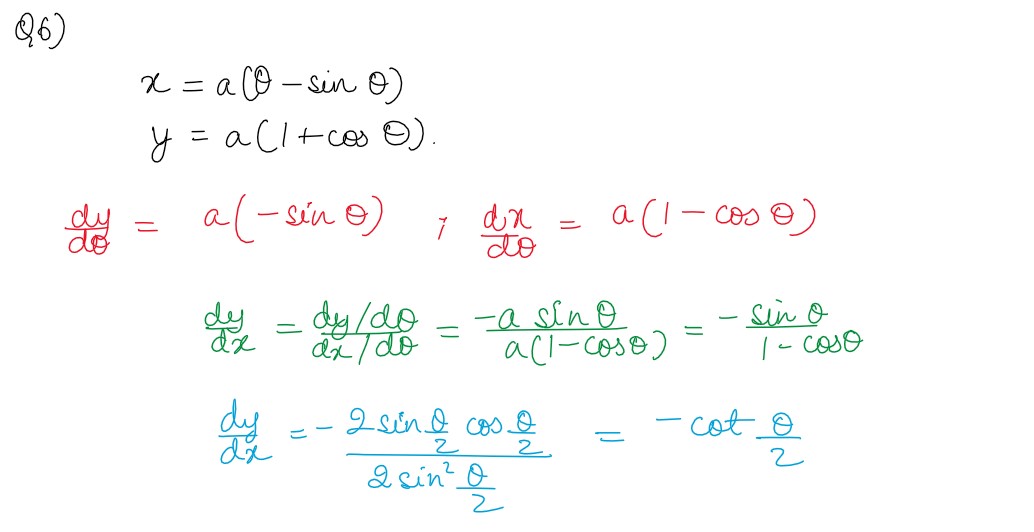 Q6)
x = a(θ − sin θ)
y = a(1 + cos θ).
dy/dθ = a(−sin θ) ; dx/dθ = a(1 − cos θ)
dy/dx = (dy/dθ)/(dx/dθ) = (−a sin θ)/(a(1 − cos θ)) = −(sin θ)/(1 − cos θ)
dy/dx = −(2 sin θ/2 cos θ/2)/(2 sin² θ/2) = −cot θ/2